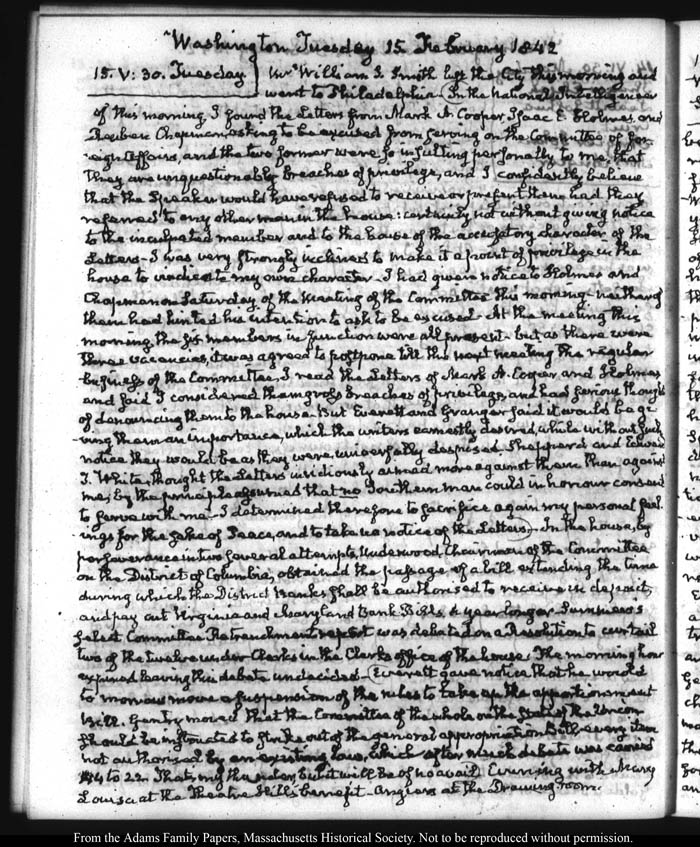 Washington Tuesday 15 February 1842
15. V: 30. Tuesday
Mr William S. Smith left the City this morning and
went to Philadelphia. In the National Intelligencer
of this morning I found the Letters from Mark A. Cooper, Isaac E. Holmes, and
Reuben Chapman, asking to be excused from serving on the Committee of for-
eign Affairs, and the two former were so insulting personally to me, that
they are unquestionably breaches of privilege, and I confidently believe
that the Speaker would have refused to receive or present them had they
referred to any other man in the house: certainly not without giving notice
to the inculpated member and to the house of the accusatory character of the
Letters. I was very strongly inclined to make it a point of privilege in the
house to vindicate my own character. I had given notice to Holmes and
Chapman on Saturday of the meeting of the Committee this morning. neither of
them had hinted his intention to ask to be excused. At the meeting this
morning, the six members in function were all present. but as there were
three vacancies, it was agreed to postpone till the next meeting the regular
business of the Committee. I read the Letters of Mark A. Cooper and Holmes
and said I considered them gross breaches of privilege, and had serious thoughts
of denouncing them to the house. But Everett and Granger said it would be gi-
ving them an importance, which the writers earnestly desired, while without such
notice they would be as they were, universally despised. Shepperd and Edward
J. White, thought the Letters invidiously aimed more against them than against
me, by the principle assumed that no Southern man could in honour consent
to serve with me. I determined therefore to sacrifice again my personal feel-
ings for the sake of Peace, and to take no notice of the Letters. In the house, by
perseverance in two several attempts, Underwood, Chairman of the Committee
on the District of Columbia, obtained the passage of a bill extending the time
during which the District Banks shall be authorised to receive in deposit,
and pay out Virginia and Maryland Bank Bills, a year longer. Summers's
Select Committee Retrenchment report was debated on a Resolution to curtail
two of the twelve under Clerks in the Clerks office of the house. The morning hour
expired leaving this debate undecided. Everett gave notice that he would
to morrow move a suspension of the rules to take up the apportionment
Bill. Gentry moved that the Committee of the whole on the State of the Union
should be instructed to strike out of the general appropriation Bill, every item
not authorised by an existing law, which after much debate was carried
to 22. That, my the rule; but it will be of no avail. Evening with Mary
Louisa at the Theatre Hills benefit. Angiers at the Drawing room.
From the Adams Family Papers, Massachusetts Historical Society. Not to be reproduced without permission.